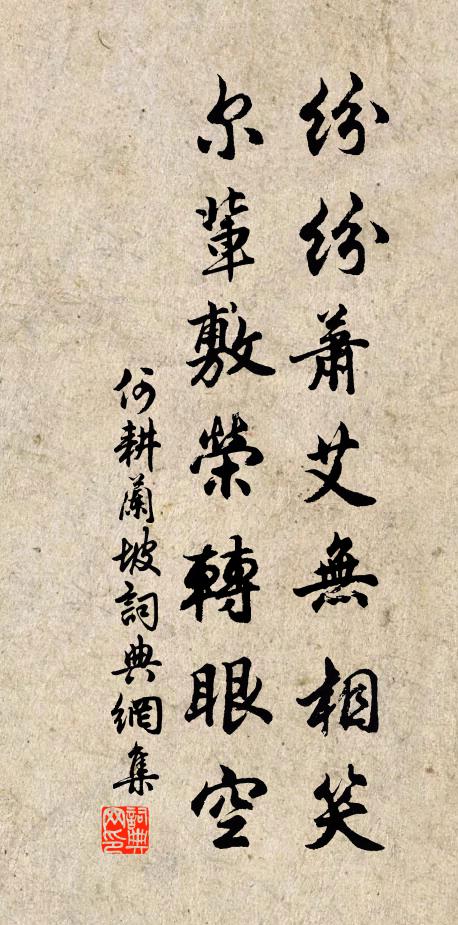 紛紛蕭艾無相笑
尔輩敷榮轉眼空
何耕蘭坡詞典網集
詞典網印